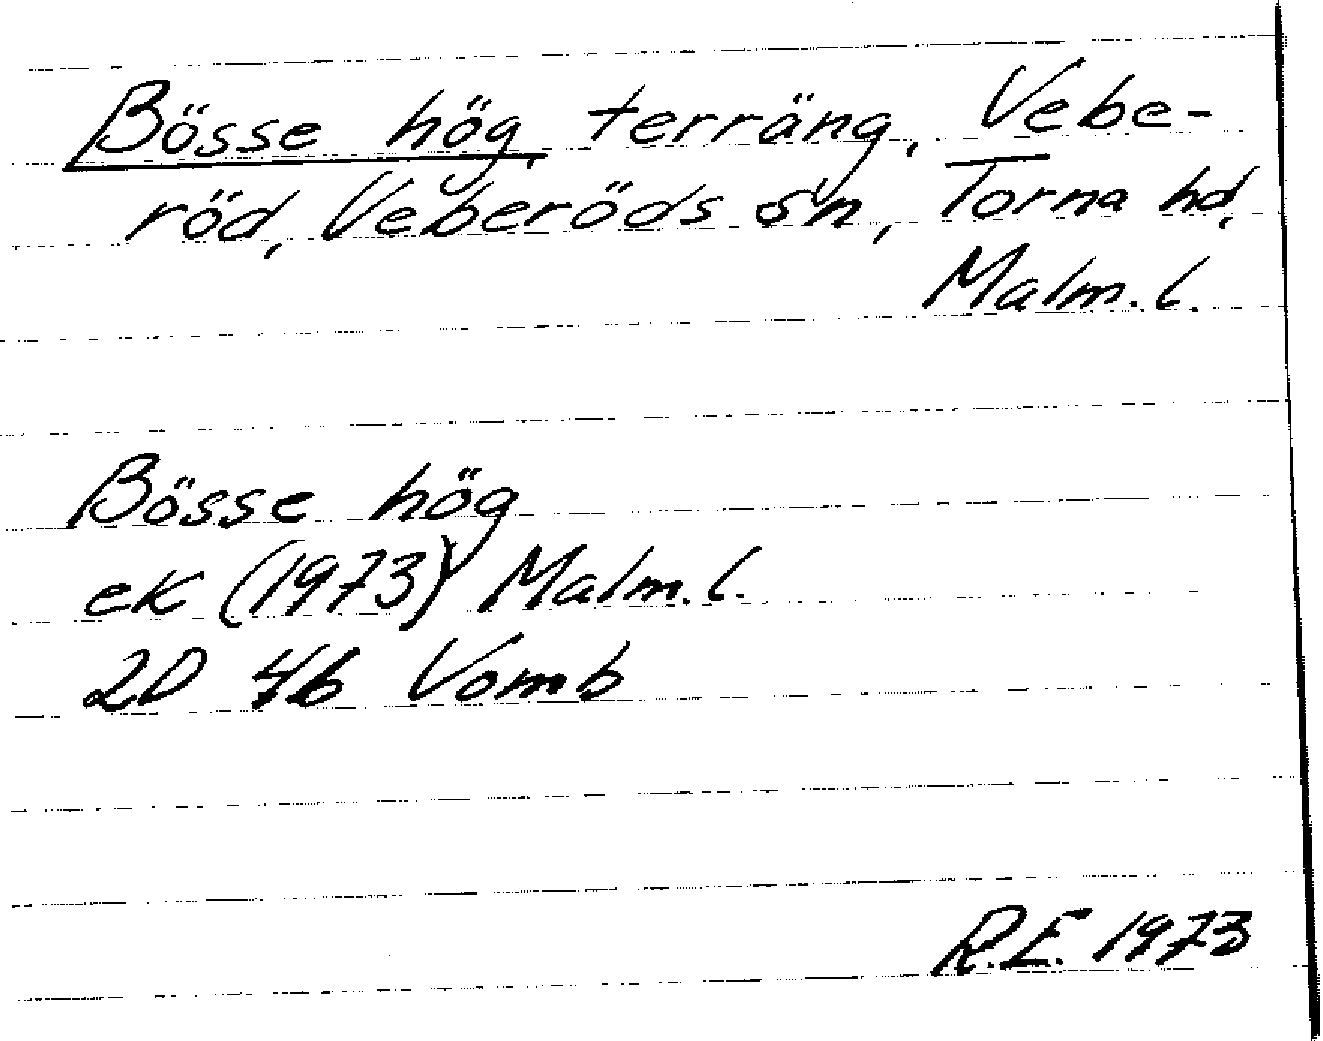 Bösse hög, terräng, Vebe-
röd, Veberöds sn, Torna hd,
Malm. l.
Bösse hög
ek (1973) Malm. l.
2D 4b Vomb
R.E. 1973